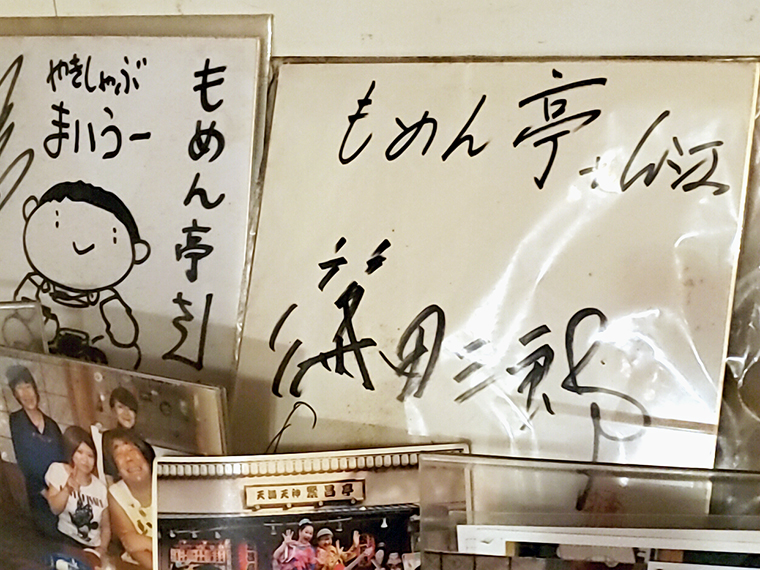 もめん亭さん
やきしゃぶ
まいうー
もめん亭さん江
天満天神 繁昌亭